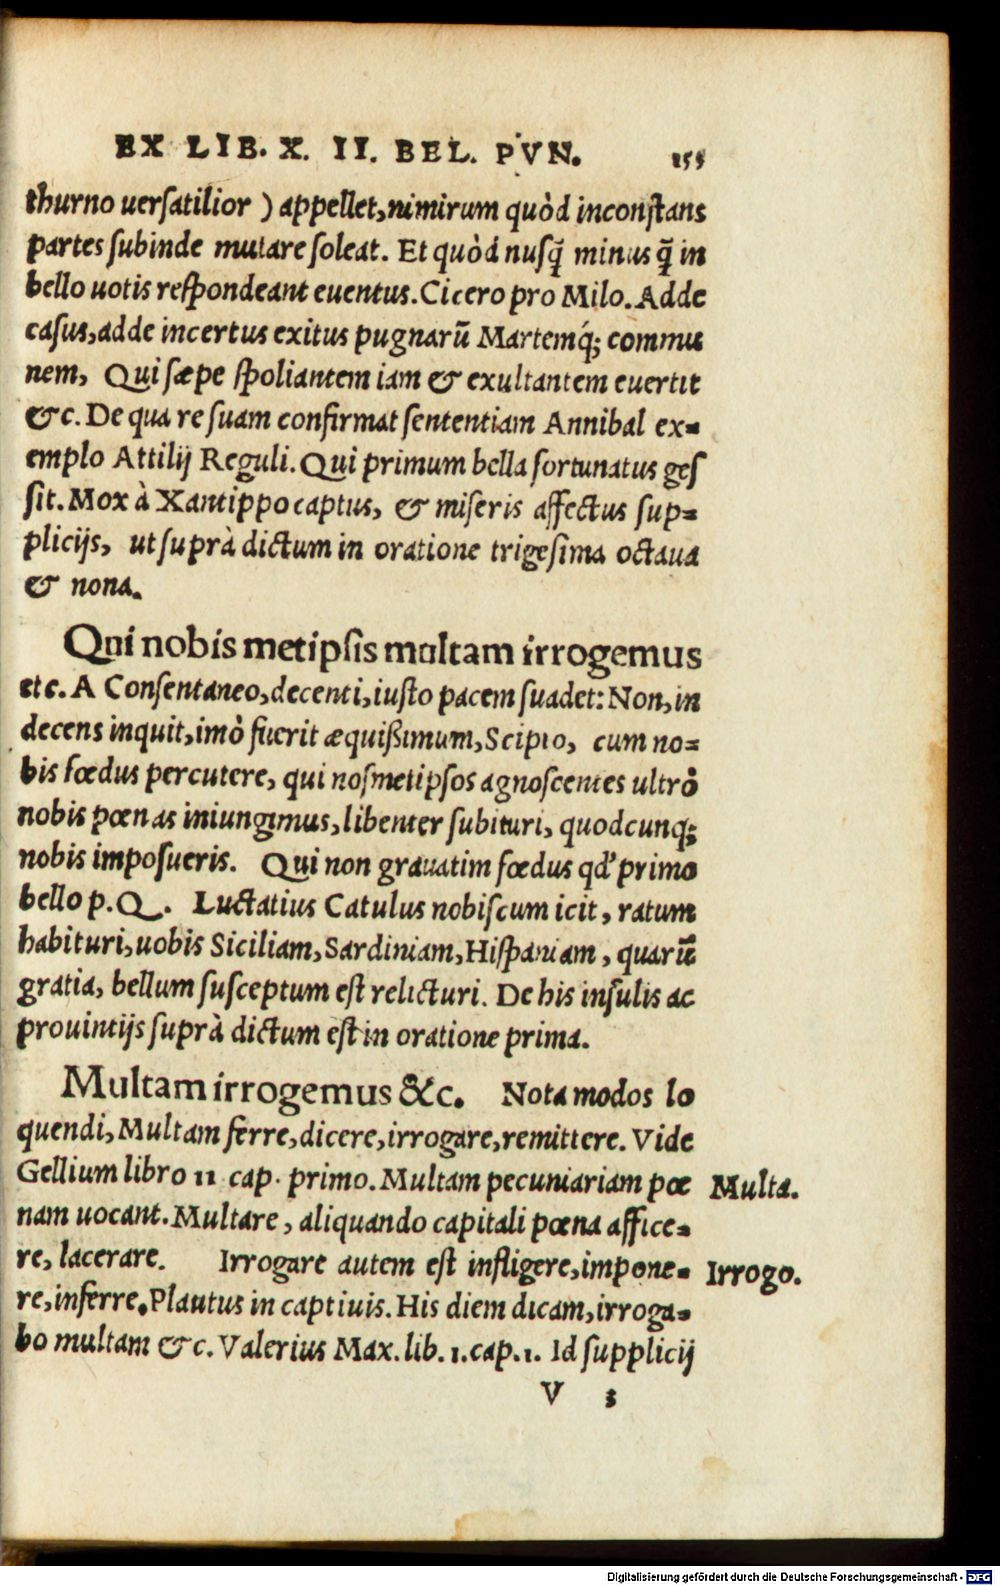 EX LIB. X. II. BEL. PVN. 155
thurno uerſatilior ) appellet,nimirum quòd inconſtans
partes ſubinde mutare ſoleat. Et quòd nuſq̃ minus q̃ in
bello uotis reſpondeant euentus.Cicero pro Milo.Adde
caſus,adde incertus exitus pugnarũ Martemq́; commu
nem, Qui ſæpe ſpoliantem iam & exultantem euertit
&c. De qua re ſuam confirmat ſententiam Annibal ex-
emplo Attilij Reguli.Qui primum bella fortunatus geſ
ſit.Mox à Xantippo captus, & miſeris affectus ſup-
plicijs, ut ſuprà dictum in oratione trigeſima octaua
& nona.
Qui nobis metipſis multam irrogemus
etc. A Conſentaneo,decenti,iuſto pacem ſuadet:Non,in
decens inquit,imò fuerit æquißimum,Scipio, cum no-
bis fœdus percutere, qui noſmetipſos agnoſcentes ultrò
nobis pœnas iniungimus,libenter ſubituri, quodcunq;
nobis impoſueris. Qui non grauatim fœdus qd' primo
bello p.Q. Luctatius Catulus nobiſcum icit, ratum
habituri,uobis Siciliam,Sardiniam,Hiſpaniam, quarũ
gratia, bellum ſuſceptum eſt relicturi. De his inſulis ac
prouintijs ſuprà dictum eſt in oratione prima.
Multam irrogemus &c. Nota modos lo
quendi,Multam ferre,dicere,irrogare,remittere. Vide
Gellium libro 11 cap. primo.Multam pecuniariam pœ Multa.
nam uocant.Multare, aliquando capitali pœna affice-
re, lacerare. Irrogare autem eſt infligere,impone- Irrogo.
re,inferre.Plautus in captiuis.His diem dicam,irroga-
bo multam &c. Valerius Max.lib.1.cap.1. Id ſupplicij
V 3
Digitalisierung gefördert durch die Deutsche Forschungsgemeinschaft - DFG